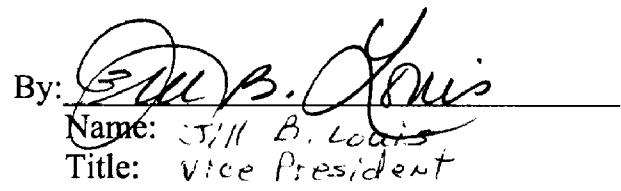 By: Jill B. Louis
Name: Jill B. Louis
Title: Vice President